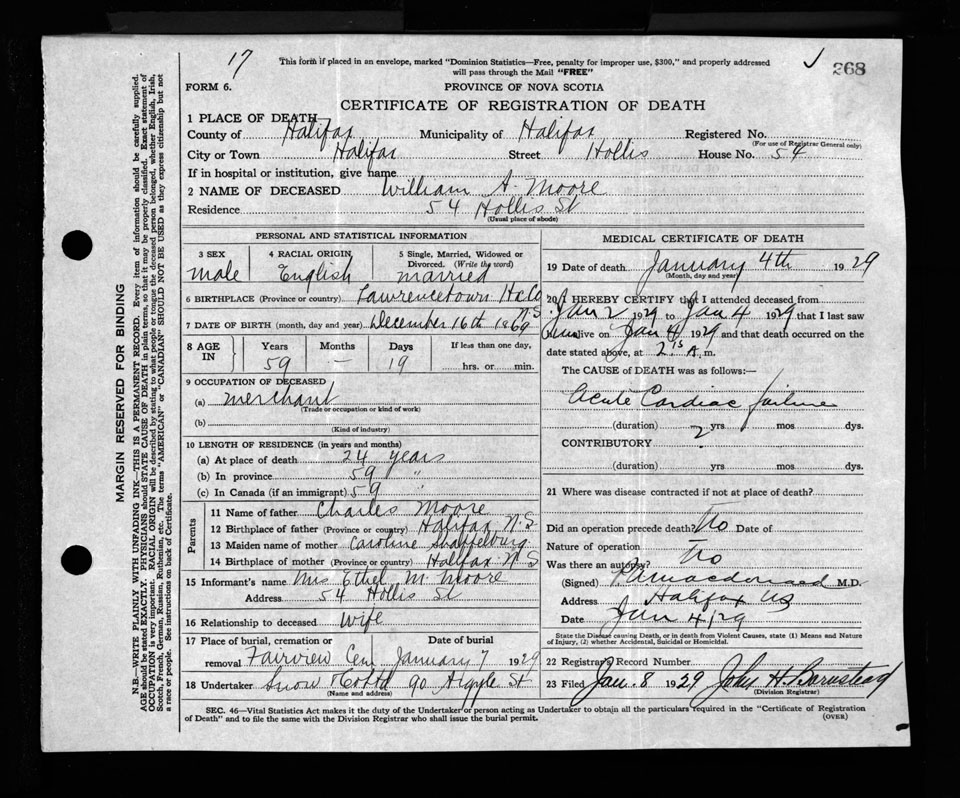 17
This form if placed in an envelope, marked "Dominion Statistics—Free, penalty for improper use, $300," and properly addressed
will pass through the Mail "FREE"
268
FORM 6.
PROVINCE OF NOVA SCOTIA
CERTIFICATE OF REGISTRATION OF DEATH
1 PLACE OF DEATH
County of Halifax Municipality of Halifax Registered No.
(For use of Registrar General only)
City or Town Halifax Street Hollis House No. 54
If in hospital or institution, give name
2 NAME OF DECEASED William A. Moore
Residence 54 Hollis St
(Usual place of abode)
PERSONAL AND STATISTICAL INFORMATION
3 SEX 4 RACIAL ORIGIN 5 Single, Married, Widowed or
Divorced. (Write the word)
male English married
6 BIRTHPLACE (Province or country) Lawrencetown Hx Co
N.S
7 DATE OF BIRTH (month, day and year) December 16th 1869
8 AGE IN Years Months Days If less than one day,
59 — 19 hrs. or min.
9 OCCUPATION OF DECEASED
(a) merchant
(Trade or occupation or kind of work)
(b)
(Kind of industry)
10 LENGTH OF RESIDENCE (in years and months)
(a) At place of death 24 years
(b) In province 59 "
(c) In Canada (if an immigrant) 59 "
Parents
11 Name of father Charles Moore
12 Birthplace of father (Province or country) Halifax N.S
13 Maiden name of mother Caroline
14 Birthplace of mother (Province or country) Halifax N S
15 Informant's name Mrs Ethel M Moore
Address 54 Hollis St
16 Relationship to deceased Wife
17 Place of burial, cremation or Date of burial
removal Fairview Cem January 7 1929
18 Undertaker Snow & Co Ltd 90 Argyle St
(Name and address)
MEDICAL CERTIFICATE OF DEATH
19 Date of death January 4th 1929
(Month, day and year)
20 I HEREBY CERTIFY that I attended deceased from
Jan 2 1929 to Jan 4 1929 that I last saw
him alive on Jan 4 1929 and that death occurred on the
date stated above, at 2 15 A. m.
The CAUSE of DEATH was as follows:—
Acute Cardiac failure
(duration) yrs mos dys.
CONTRIBUTORY ?
(duration) yrs. mos. dys.
21 Where was disease contracted if not at place of death?
Did an operation precede death? No Date of
Nature of operation
Was there an autopsy? No
(Signed) Macdonald M.D.
Address Halifax NS
Date Jan 4/29
State the Disease causing Death, or in death from Violent Causes, state (1) Means and Nature
of Injury, (2) whether Accidental, Suicidal or Homicidal.
22 Registrar's Record Number
23 Filed Jan. 8 1929 John H. Barnstead
(Division Registrar)
SEC. 46—Vital Statistics Act makes it the duty of the Undertaker or person acting as Undertaker to obtain all the particulars required in the "Certificate of Registration
of Death" and to file the same with the Division Registrar who shall issue the burial permit.
(OVER)
MARGIN RESERVED FOR BINDING
N.B.—WRITE PLAINLY WITH UNFADING INK—THIS IS A PERMANENT RECORD. Every item of information should be carefully supplied.
AGE should be stated EXACTLY. PHYSICIANS should STATE CAUSE OF DEATH in plain terms, so that it may be properly classified. Exact statement of
OCCUPATION is very important. RACIAL ORIGIN will be described by stating to what people or tongue the deceased person belonged, whether English, Irish,
Scotch, French, German, Russian, Ruthenian, etc. The terms "AMERICAN" or "CANADIAN" SHOULD NOT BE USED as they express citizenship but not
a race or people. See instructions on back of Certificate.